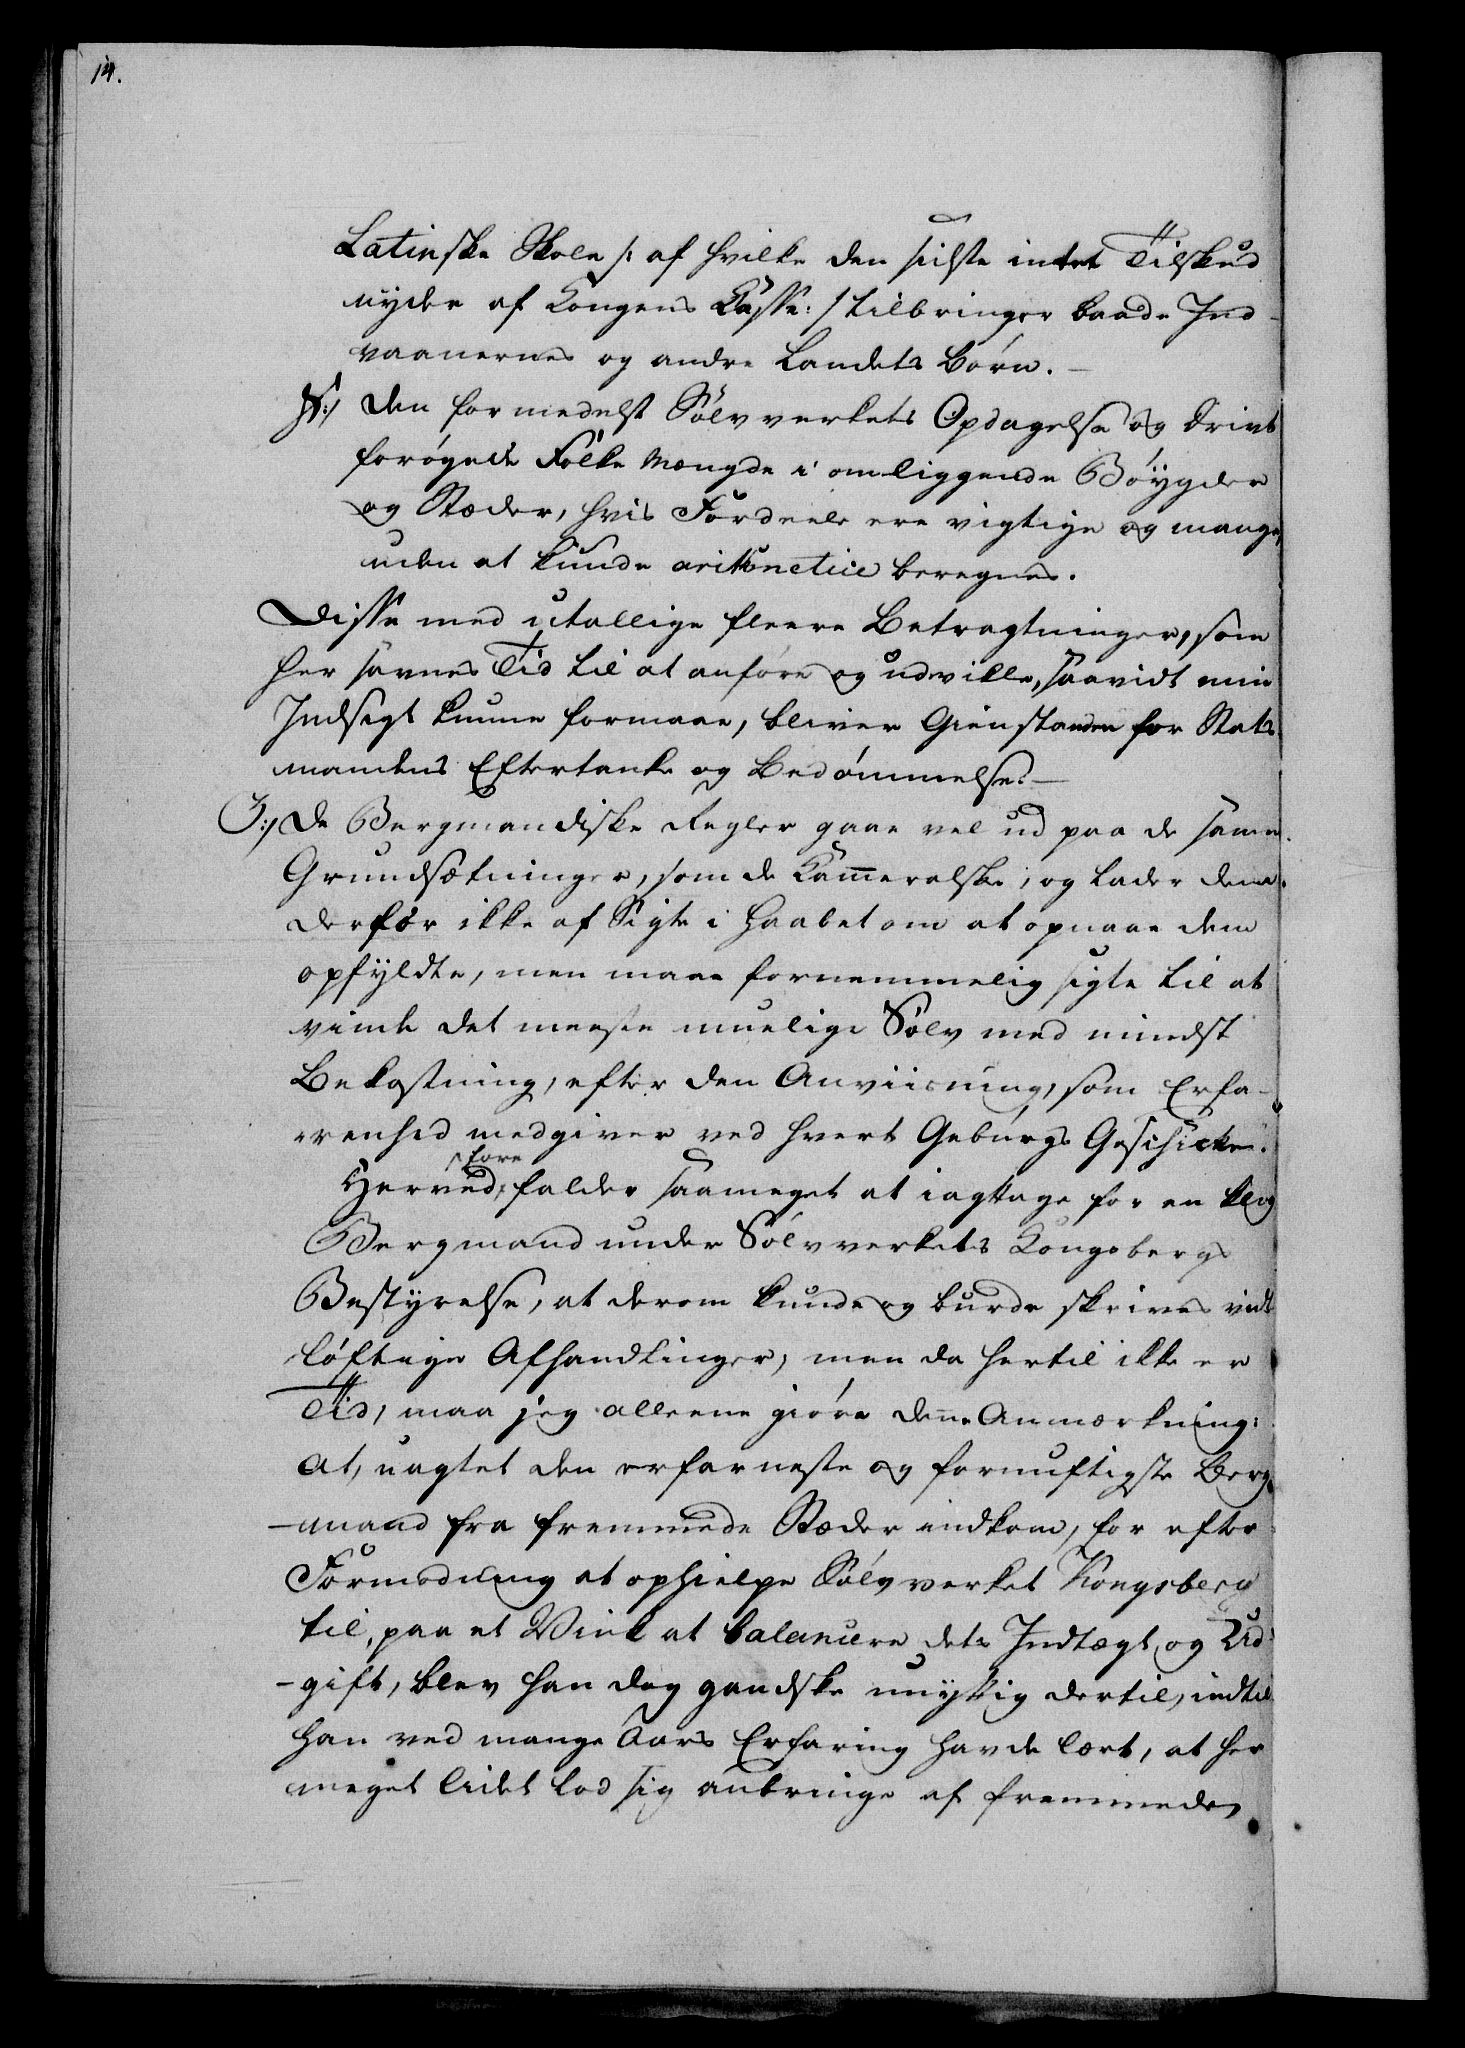 14.
Latinske Skole /: af hvilke den sidste intet Tilskud
nyder af Kongens Casse: / tilbringer baade Ind-
vaanernes og andre Landets Børn. —
den formedelst Sølvverkets Opdagelse og Drivt
forøgede Folke Mængde i omliggende Bøygder
og Stæder, hvis Fordeele ere vigtige og mange,
uden at kunde arithmetice beregnes.
Disse med utallige fleere Betragtninger, som
her savnes Tid til at anføre og udvikle, saavidt min
Indsigt kunne formaae, bliver Gienstanden for Stats
mandens Eftertanke og Bedømmelse. —
3:/ De Bergmandiske Regler gaae vel ud paa de samme
Grundsætninger, som de Kammeralske, og lader dem
derfor ikke af Sigte i Haabet om at opnaae dem
opfyldte, men maae fornemmelig sigte til at
vinde det meeste muelige Sølv med mindst
Bekostning, efter den Anviisning, som Erfa-
renhed medgiver ved hvert Gebürgs Geschicke.
fore
Herved falder saameget at iagttage for en klog
Bergmand under Sølvverkets Kongsbergs
Bestyrelse, at derom kunde og burde skrives vidt
løftige Afhandlinger, men da hertil ikke er
Tid, maa jeg alleene giøre denne Anmærkning:
At, uagtet den erfarneste og fornuftigste Berg
-mand fra fremmede Stæder indkom, for efter
Formodning at ophielpe Sølvverket Kongsberg
til, paa et Vink at balancere dets Indtægt og Ud
-gift, blev han dog gandske unyttig dertil, indtil
han ved mange Aars Erfaring havde lært, at her
meget lidet lod sig anbringe af fremmede